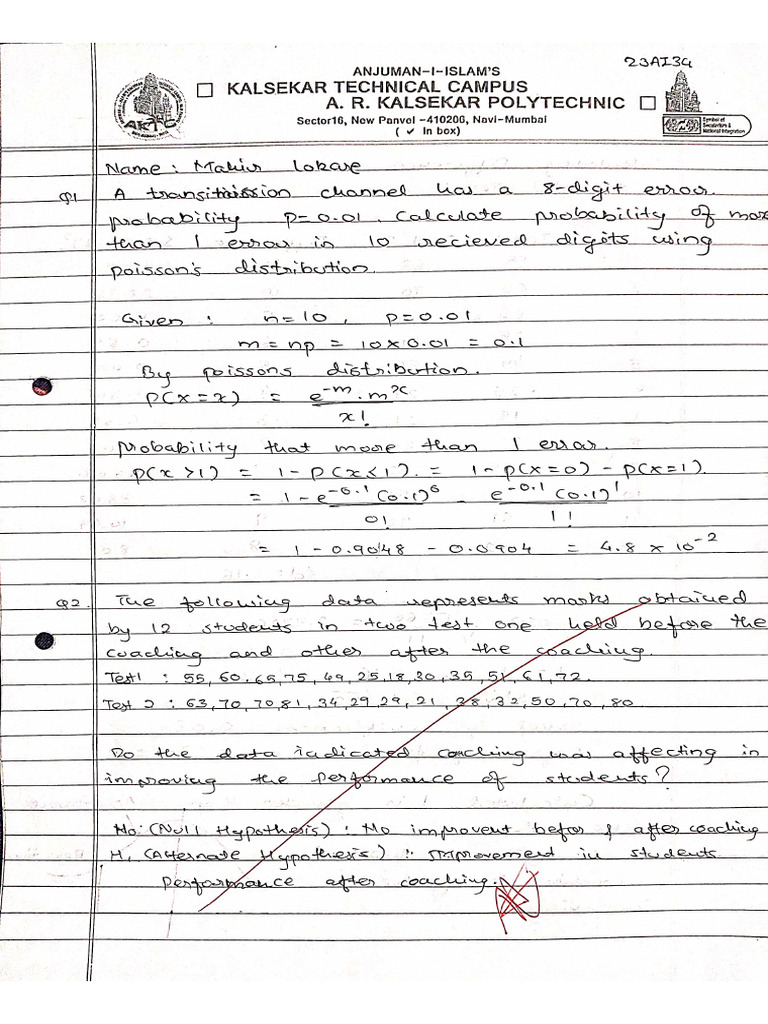 23AI34
ANJUMAN-I-ISLAM'S
KALSEKAR TECHNICAL CAMPUS
A. R. KALSEKAR POLYTECHNIC
Sector16, New Panvel -410206, Navi-Mumbai
( ✓ In box)
AKTC
Symbol of
Secularism &
National Integration
Name : Mahir Lokare
Q1 A transitmission channel has a 8-digit error
probability p=0.01. Calculate probability of more
than 1 error in 10 recieved digits using
poisson's distribution.
Given : n=10, p=0.01
m = np = 10×0.01 = 0.1
By poissons distribution.
P(X=x) = e^-m . m^x
x!
Probability that more than 1 error.
P(x >1) = 1 - P(x≤1). = 1 - p(x=0) - p(x=1).
= 1 - e^-0.1 (0.1)^0 - e^-0.1 (0.1)^1
0! 1!
= 1 - 0.9048 - 0.0904 = 4.8 × 10^-2
Q2. The following data represents marks obtained
by 12 students in two test one held before the
coaching and other after the coaching.
Test1 : 55, 60, 65, 75, 49, 25, 18, 30, 35, 51, 61, 72.
Test 2 : 63, 70, 70, 81, 34, 29, 29, 21, 38, 32, 50, 70, 80.
Do the data indicated coaching was affecting in
improving the performance of students?
Ho: (Null Hypothesis) : No improvent befor & after coaching
H, (Alternate Hypothesis) : Improvement in students
Performance after coaching.